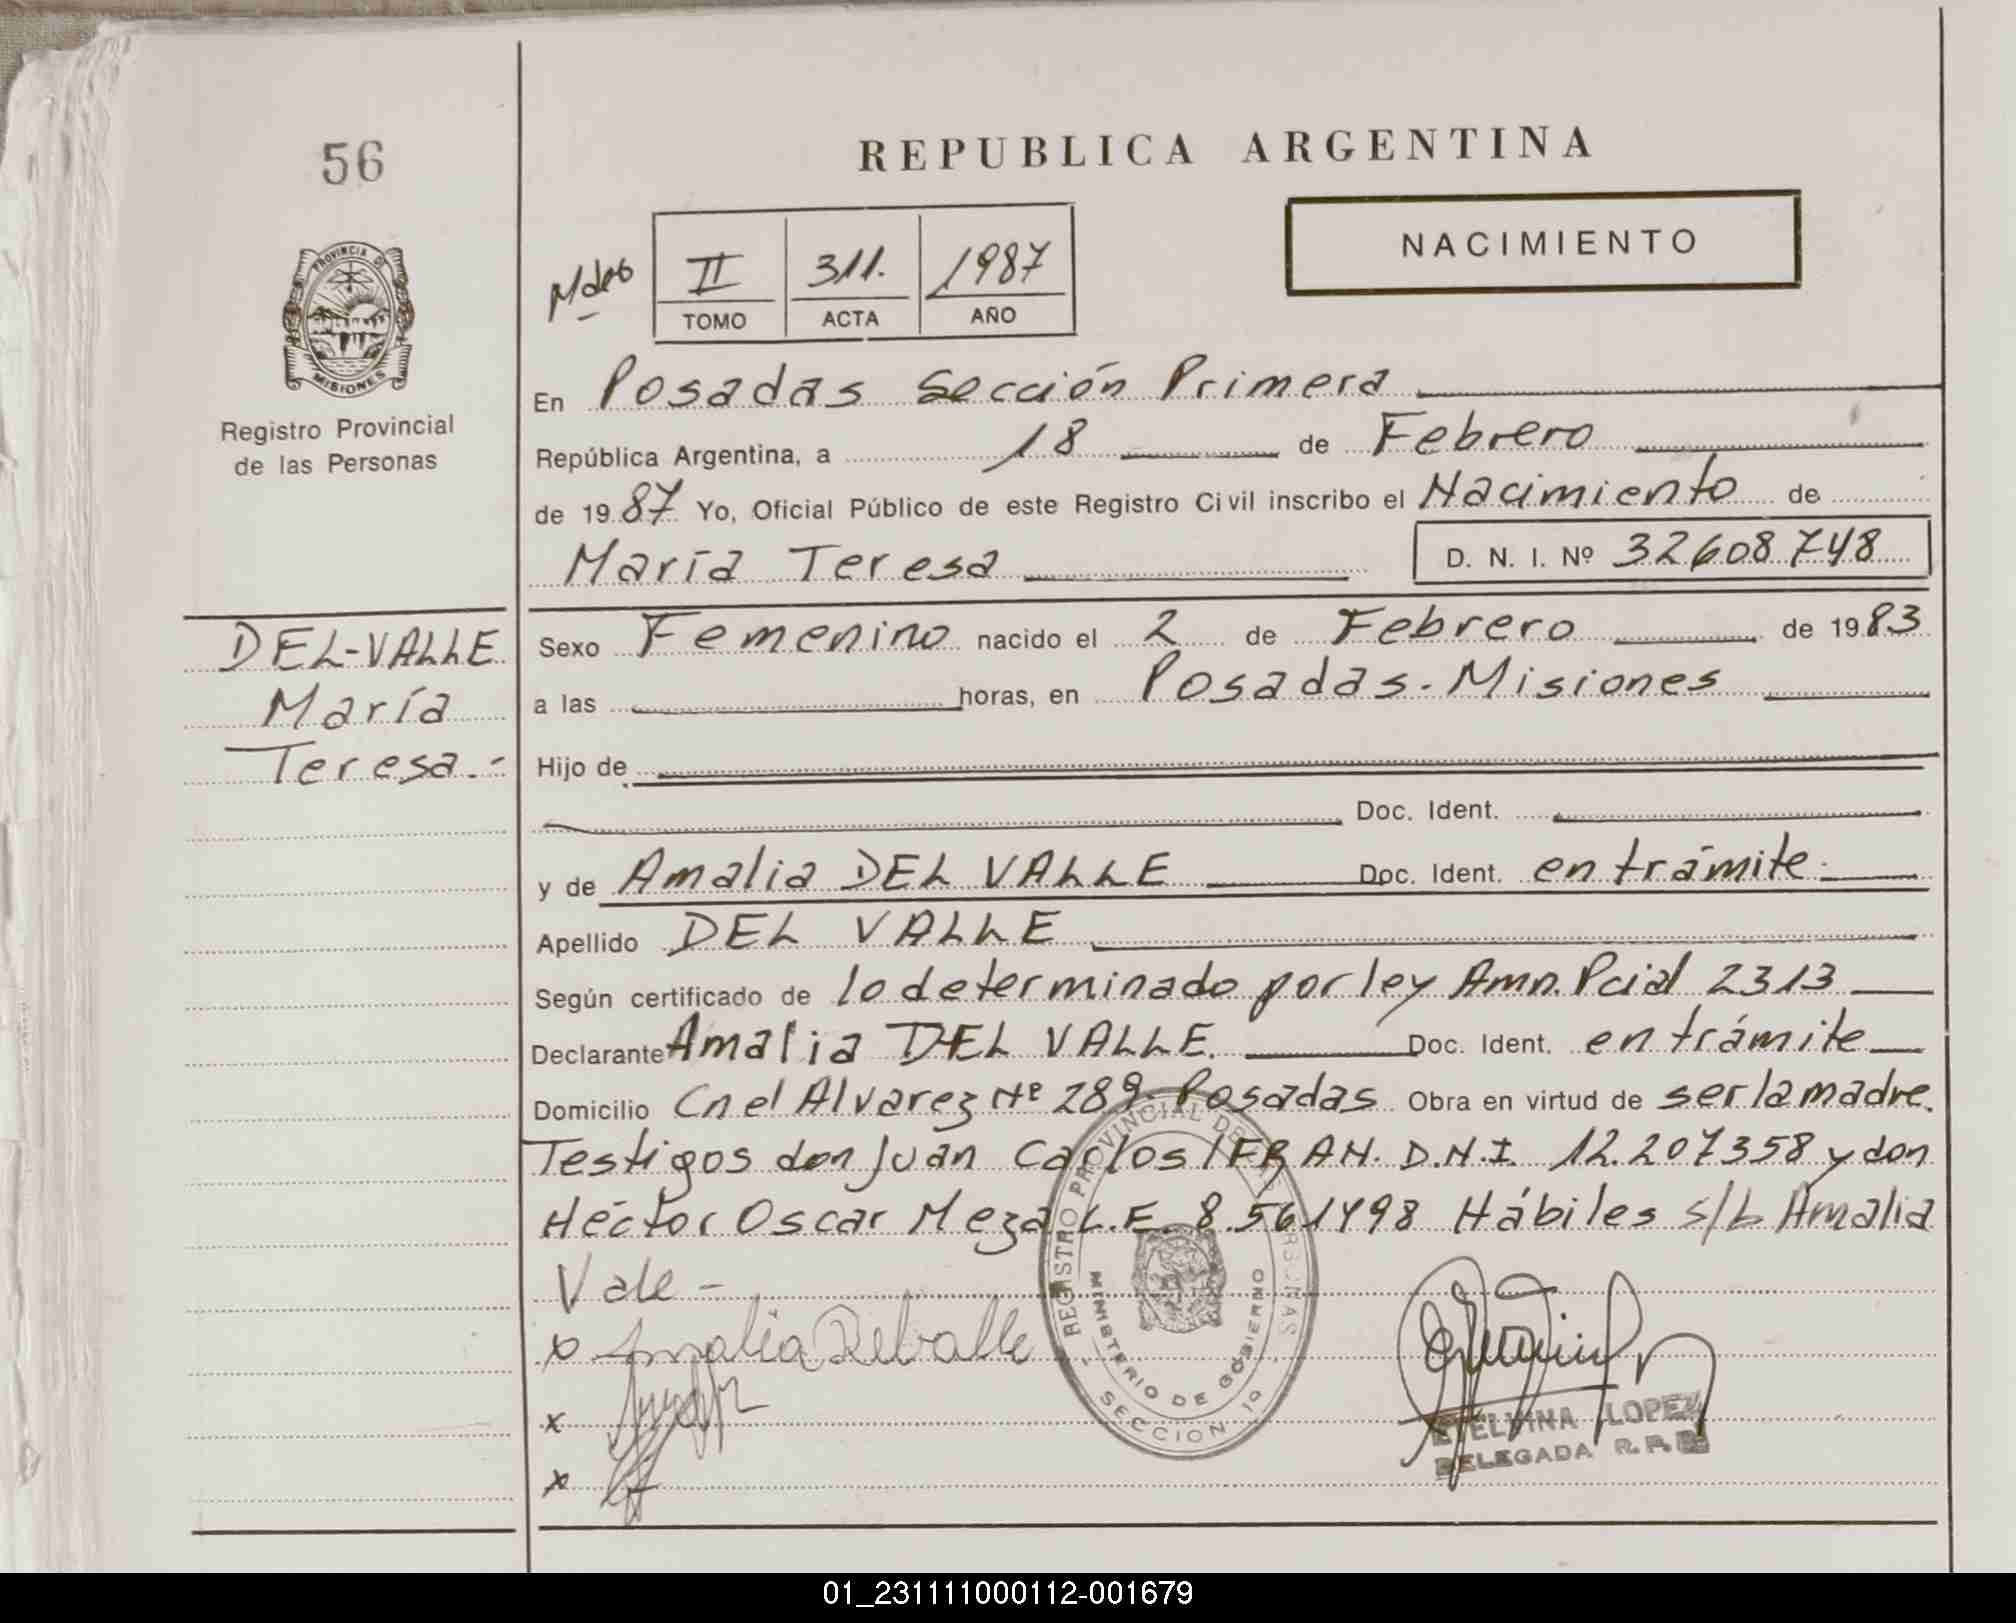 56
REPUBLICA ARGENTINA
NACIMIENTO
II 311. 1987
TOMO ACTA AÑO
PROVINCIA DE
MISIONES
Registro Provincial
de las Personas
En Posadas Sección Primera
República Argentina, a 18 de Febrero
de 1987 Yo, Oficial Público de este Registro Civil inscribo el Nacimiento de
María Teresa D. N. I. Nº 32608.748
DEL-VALLE
María
Teresa.-
Sexo Femenino nacido el 2 de Febrero de 1983
a las horas, en Posadas-Misiones
Hijo de
Doc. Ident.
y de Amalia DEL VALLE Doc. Ident. en trámite.
Apellido DEL VALLE
Según certificado de lo determinado por ley Amn. Pcial 2313
Declarante Amalia DEL VALLE. Doc. Ident. en trámite
Domicilio Cnel Alvarez Nº 289. Posadas Obra en virtud de ser la madre.
Testigos don Juan Carlos IFRAN. D.N.I. 12.207358 y don
Héctor Oscar Meza L.E. 8.561498 Hábiles s/b Amalia
Vale -
x Amalia Delvalle
x
x
REGISTRO PROVINCIAL DE LAS PERSONAS
MINISTERIO DE GOBIERNO
SECCION 1º
ETELVINA LOPEZ
DELEGADA R. P.
01_231111000112-001679